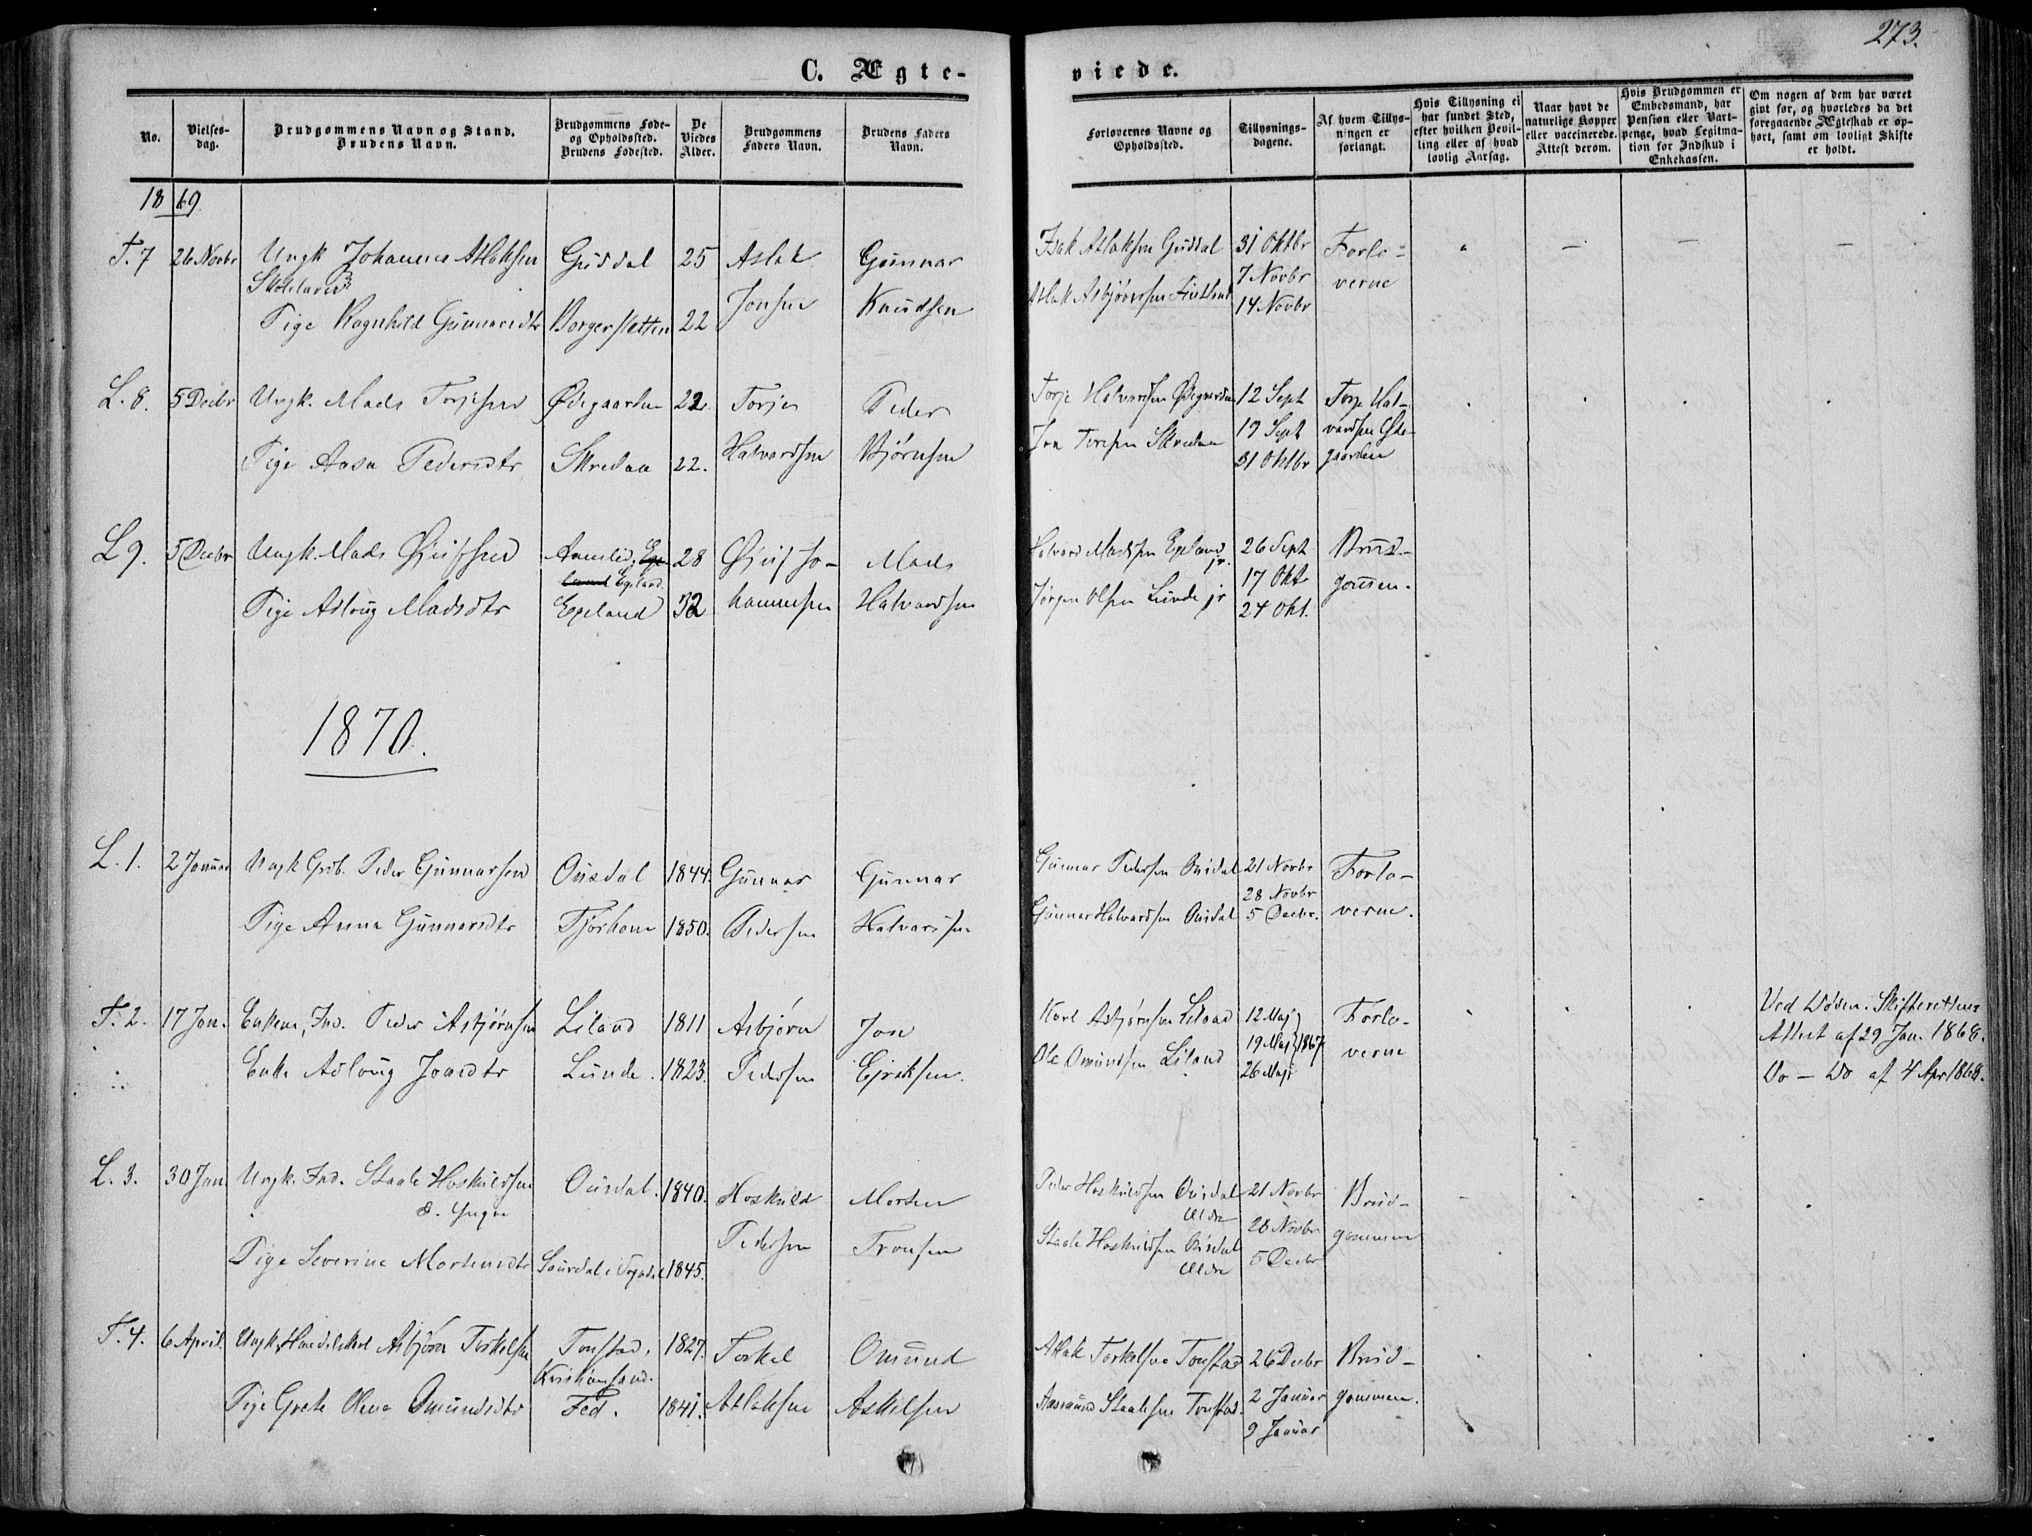 273.
C. Ægte-
viede.
No.
Vielses-
dag.
Brudgommens Navn og Stand.
Brudens Navn.
Brudgommens Føde-
og Opholdssted.
Brudens Fødested.
De
Viedes
Alder.
Brudgommens
Faders Navn.
Brudens Faders
Navn.
Forlovernes Navne og
Opholdssted.
Tillysnings-
dagene.
Af hvem Tillys-
ningen er
forlangt.
Hvis Tillysning ei
har fundet Sted,
efter hvilken Bevil-
ling eller af hvad
lovlig Aarsag.
Naar havt de
naturlige Kopper
eller vaccinerede.
Attest derom.
Hvis Brudgommen er
Embedsmand, har
Pension eller Vart-
penge, hvad Legitima-
tion for Indskud i
Enkekassen.
Om nogen af dem har været
gift før, og hvorledes da det
foregaaende Ægteskab er op-
hørt, samt om lovligt Skifte
er holdt.
1869
F. 7
26 Novbr
Ungk Johannes Atlaksen
Skolelærer
Tige Ragnhild Gunnarsdtr
Gusdal
Borgersletten
25
22
Aslak
Jonsen
Gunnar
Knudsen
Isak Atlaksen Gusdal
Atlak Asbjørnsen
31 Oktbr
7 Novbr
14 Novbr
Forlo-
verne
L. 8.
5 Decbr
Ungk. Mads Torjesen
Pige Aasa Pedersdtr
Ødegaarden
Skredaa
22.
22.
Torje
Halvardsen
Peder
Bjørnsen
Torje Halvardsen Ødegaarden
Jon Toresen Skredaa
12 Sept
19 Sept
31 Oktbr
Torje Hal-
vardsen Øde-
gaarden
L 9.
5 Decbr
Ungk. Mads Øjufsen
Pige Aslaug Madsdtr
Egeland
Egeland
28
32
Øjuf Jo-
hannesen
Mads
Halvardsen
Halvard Madsen Egeland jr.
Jørgen Olsen Lunde jr
26 Sept
17 Okt
24 Okt.
Brud-
gommen.
1870.
L. 1.
2 Januar
Ungk Grb. Peder Gunnarsen
Pige Anna Gunnarsdtr
Ousdal
Tjørhom
1844.
1850.
Gunnar
Pedersen
Gunnar
Halvardsen
Gunnar Pedersen Ousdal
Gunnar Halvardsen Ousdal
21 Novbr
28 Novbr
5 Decbr.
Forlo-
verne.
F. 2.
17 Jan.
Enkem, Ind. Peder Asbjørnsen
Enke Aslaug Jonsdtr
Liland
Lunde.
1811
1823.
Asbjørn
Pedersen
Jon
Ejriksen.
Karl Asbjørnsen Liland
Ole Omundsen Liland
12 Maj
19 Maj 1867
26 Maj
Forlo-
verne
Ved Døden. Skifterettens
Attest af 29 Jan. 1868.
Do — Do af 4 Apr 1868.
L. 3.
30 Jan
Ungk. Ind. Staale Hoskuldsen
d. Yngre
Pige Severine Mortensdtr
Ousdal.
1840.
1845.
Hoskuld
Pedersen
Morten
Tronsen
Peder Hoskuldsen Ousdal
Ældre
Staale Hoskuldsen Ousdal
Ældre
21 Novbr
28 Novbr
5 Decbr
Brud-
gommen
F. 4.
6 April.
Ungk, Handelskarl Asbjørn Torkelsen
Pige Grete Olena Omundsdtr
Tonstad,
Kristiansand.
Fed.
1827.
1841.
Torkel
Atlaksen
Omund
Askilsen
Atlak Torkelsen Tonstad
Aasmund Staalesen Tonstad.
26 Decbr
2 Januar
9 Januar
Brud-
gommen.